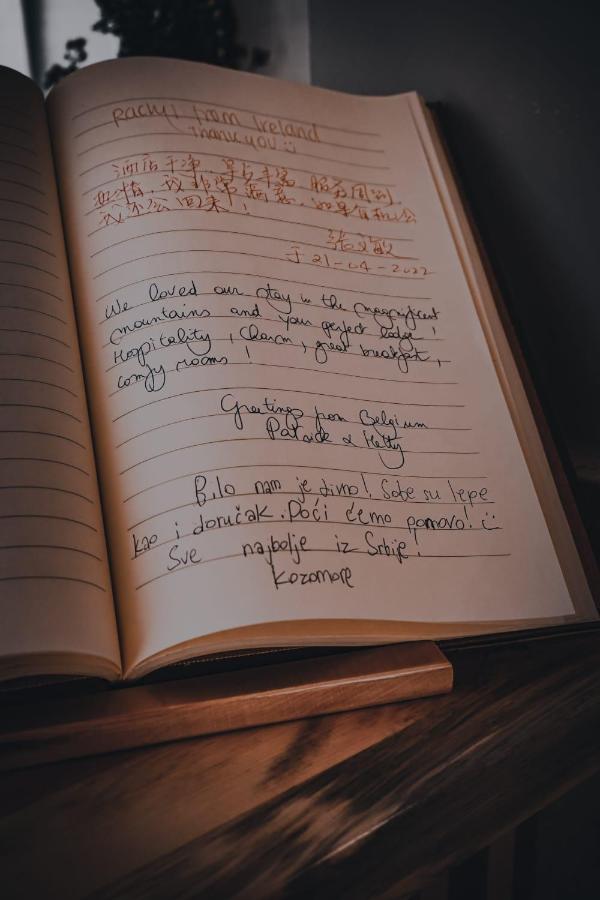 from Ireland
Thank you
酒店干净,早后丰富,服务周到,
热情,我非常满意,如果有机会
我还会回来!
张文敏
于 21-04-2022
We loved our stay in the magnificent
mountains and your perfect lodge!
Hospitality, Charm, great breakfast,
comfy rooms!
Greetings from Belgium
&
Bilo nam je divno! Sobe su lepe
kao i doručak. Doći ćemo ponovo!
Sve najbolje iz Srbije!